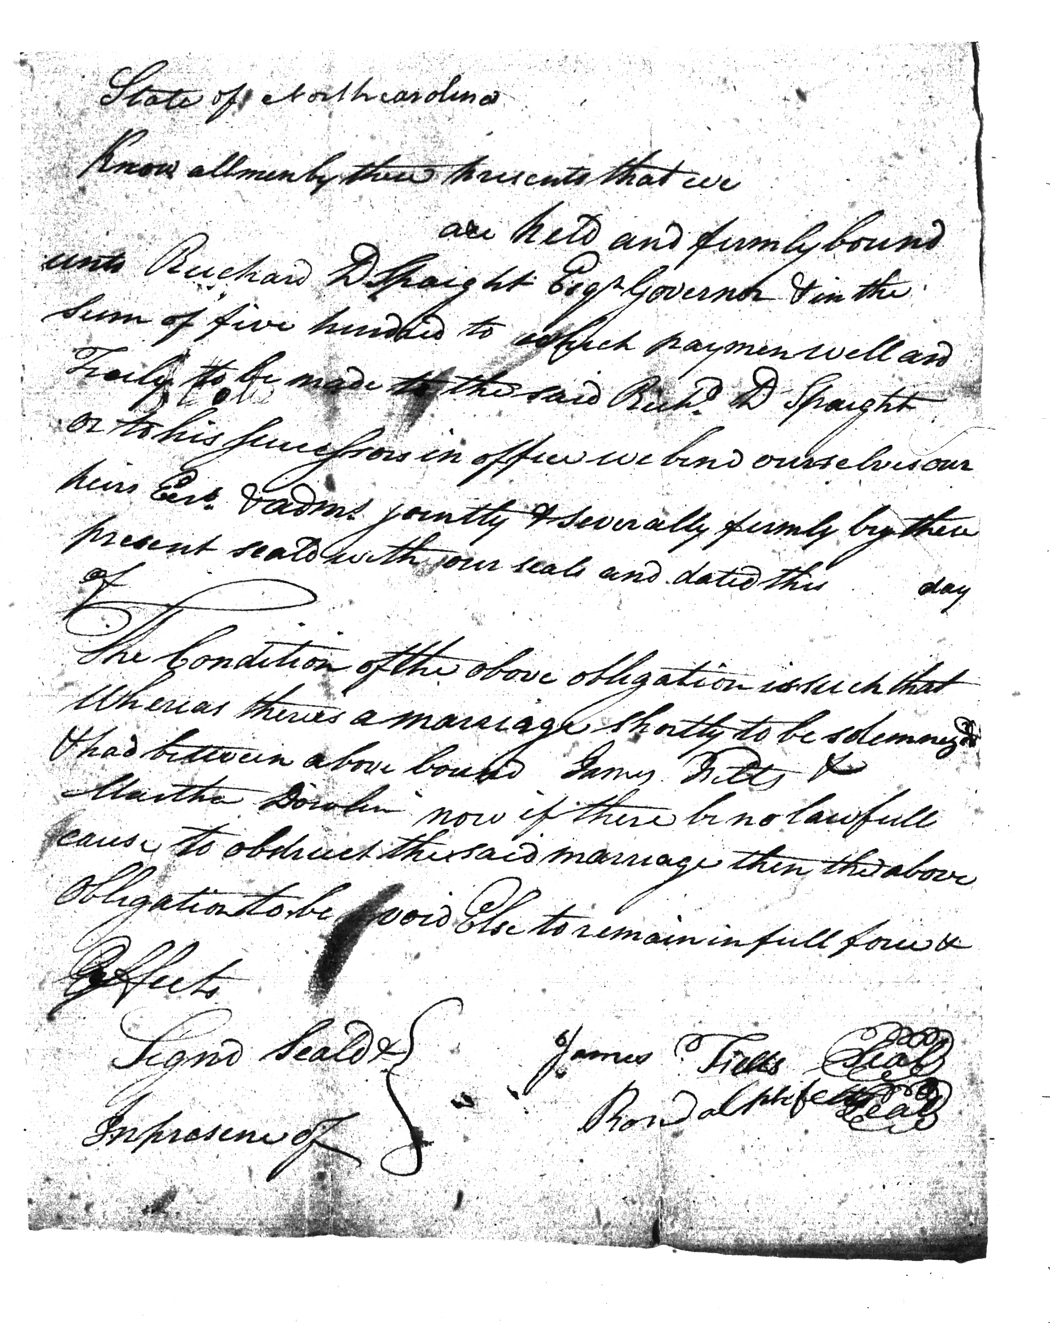 State of North carolina
Know all men by these presents that we
are held and firmly bound
unto Richard D Spaight Esqr Governor & in the
sum of five hundred to which paymen well and
Truly to be made to the said Richd D Spaight
or to his successors in office we bind ourselves our
heirs Exrs & adms jointly & severally firmly by these
present seald with our seals and dated this day
of
The Condition of the above obligation is such that
Whereas theres a marriage shortly to be solemnizd
& had between above bound James Fields &
Martha now if there be no lawfull
cause to obstruct the said marriage then the above
Obligation to be void Else to remain in full force &
Effects
Signd Seald &
In presence of
James Seal
Seal